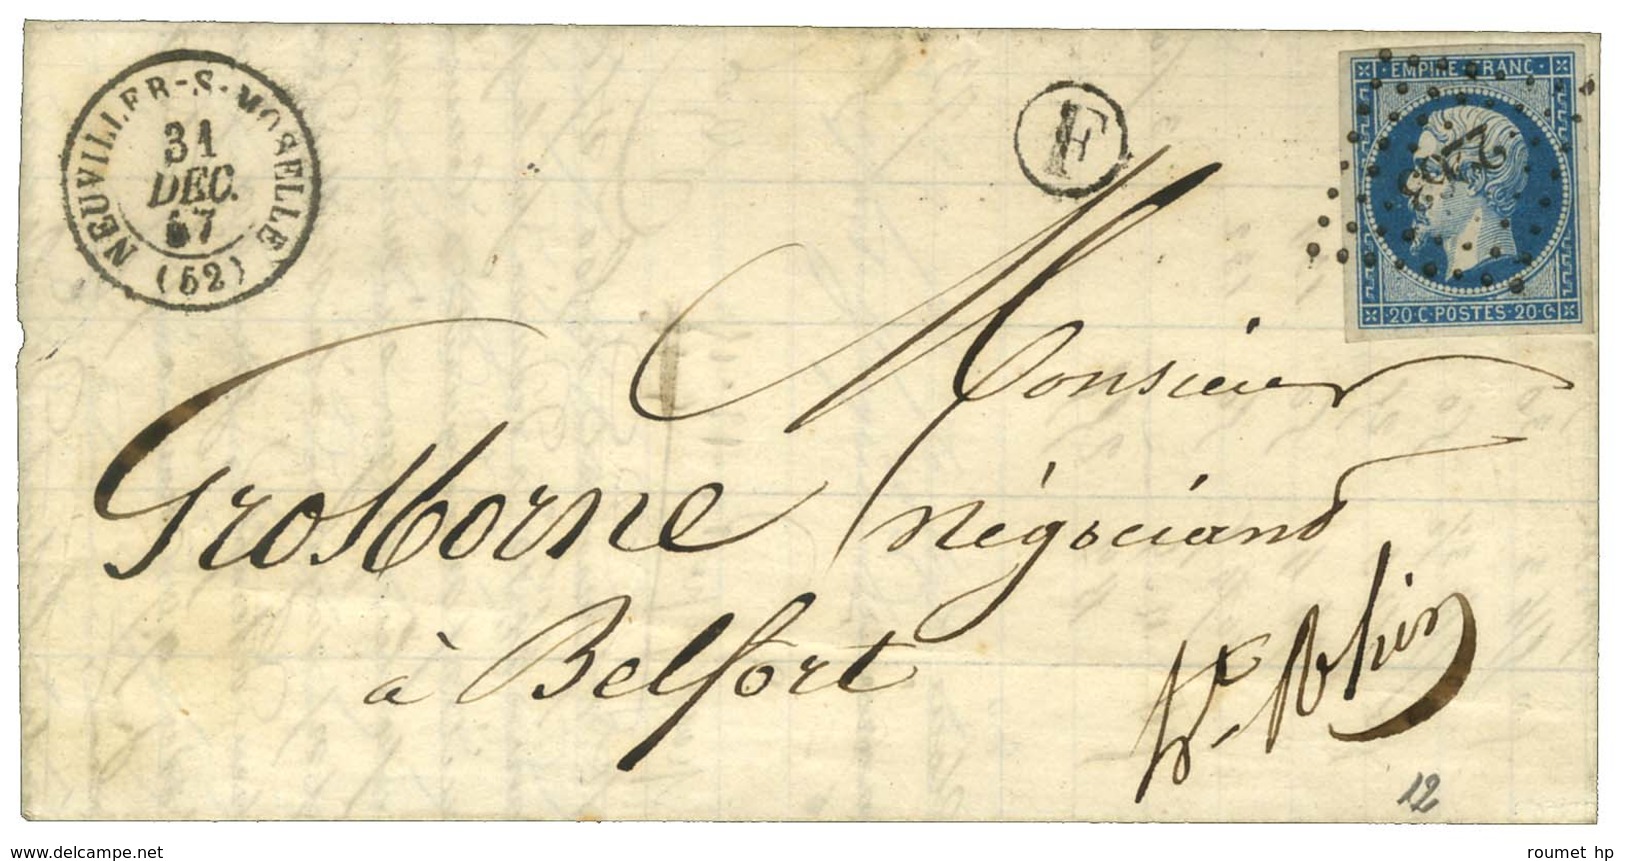 NEUVILLER-S-MOSELLE
31
DEC.
57
(52)
F
EMPIRE FRANC
20 C·POSTES·20 C
Monsieur
Grosborne négociant
à Belfort
Ht Rhin
12
delcampe.net
roumet hp